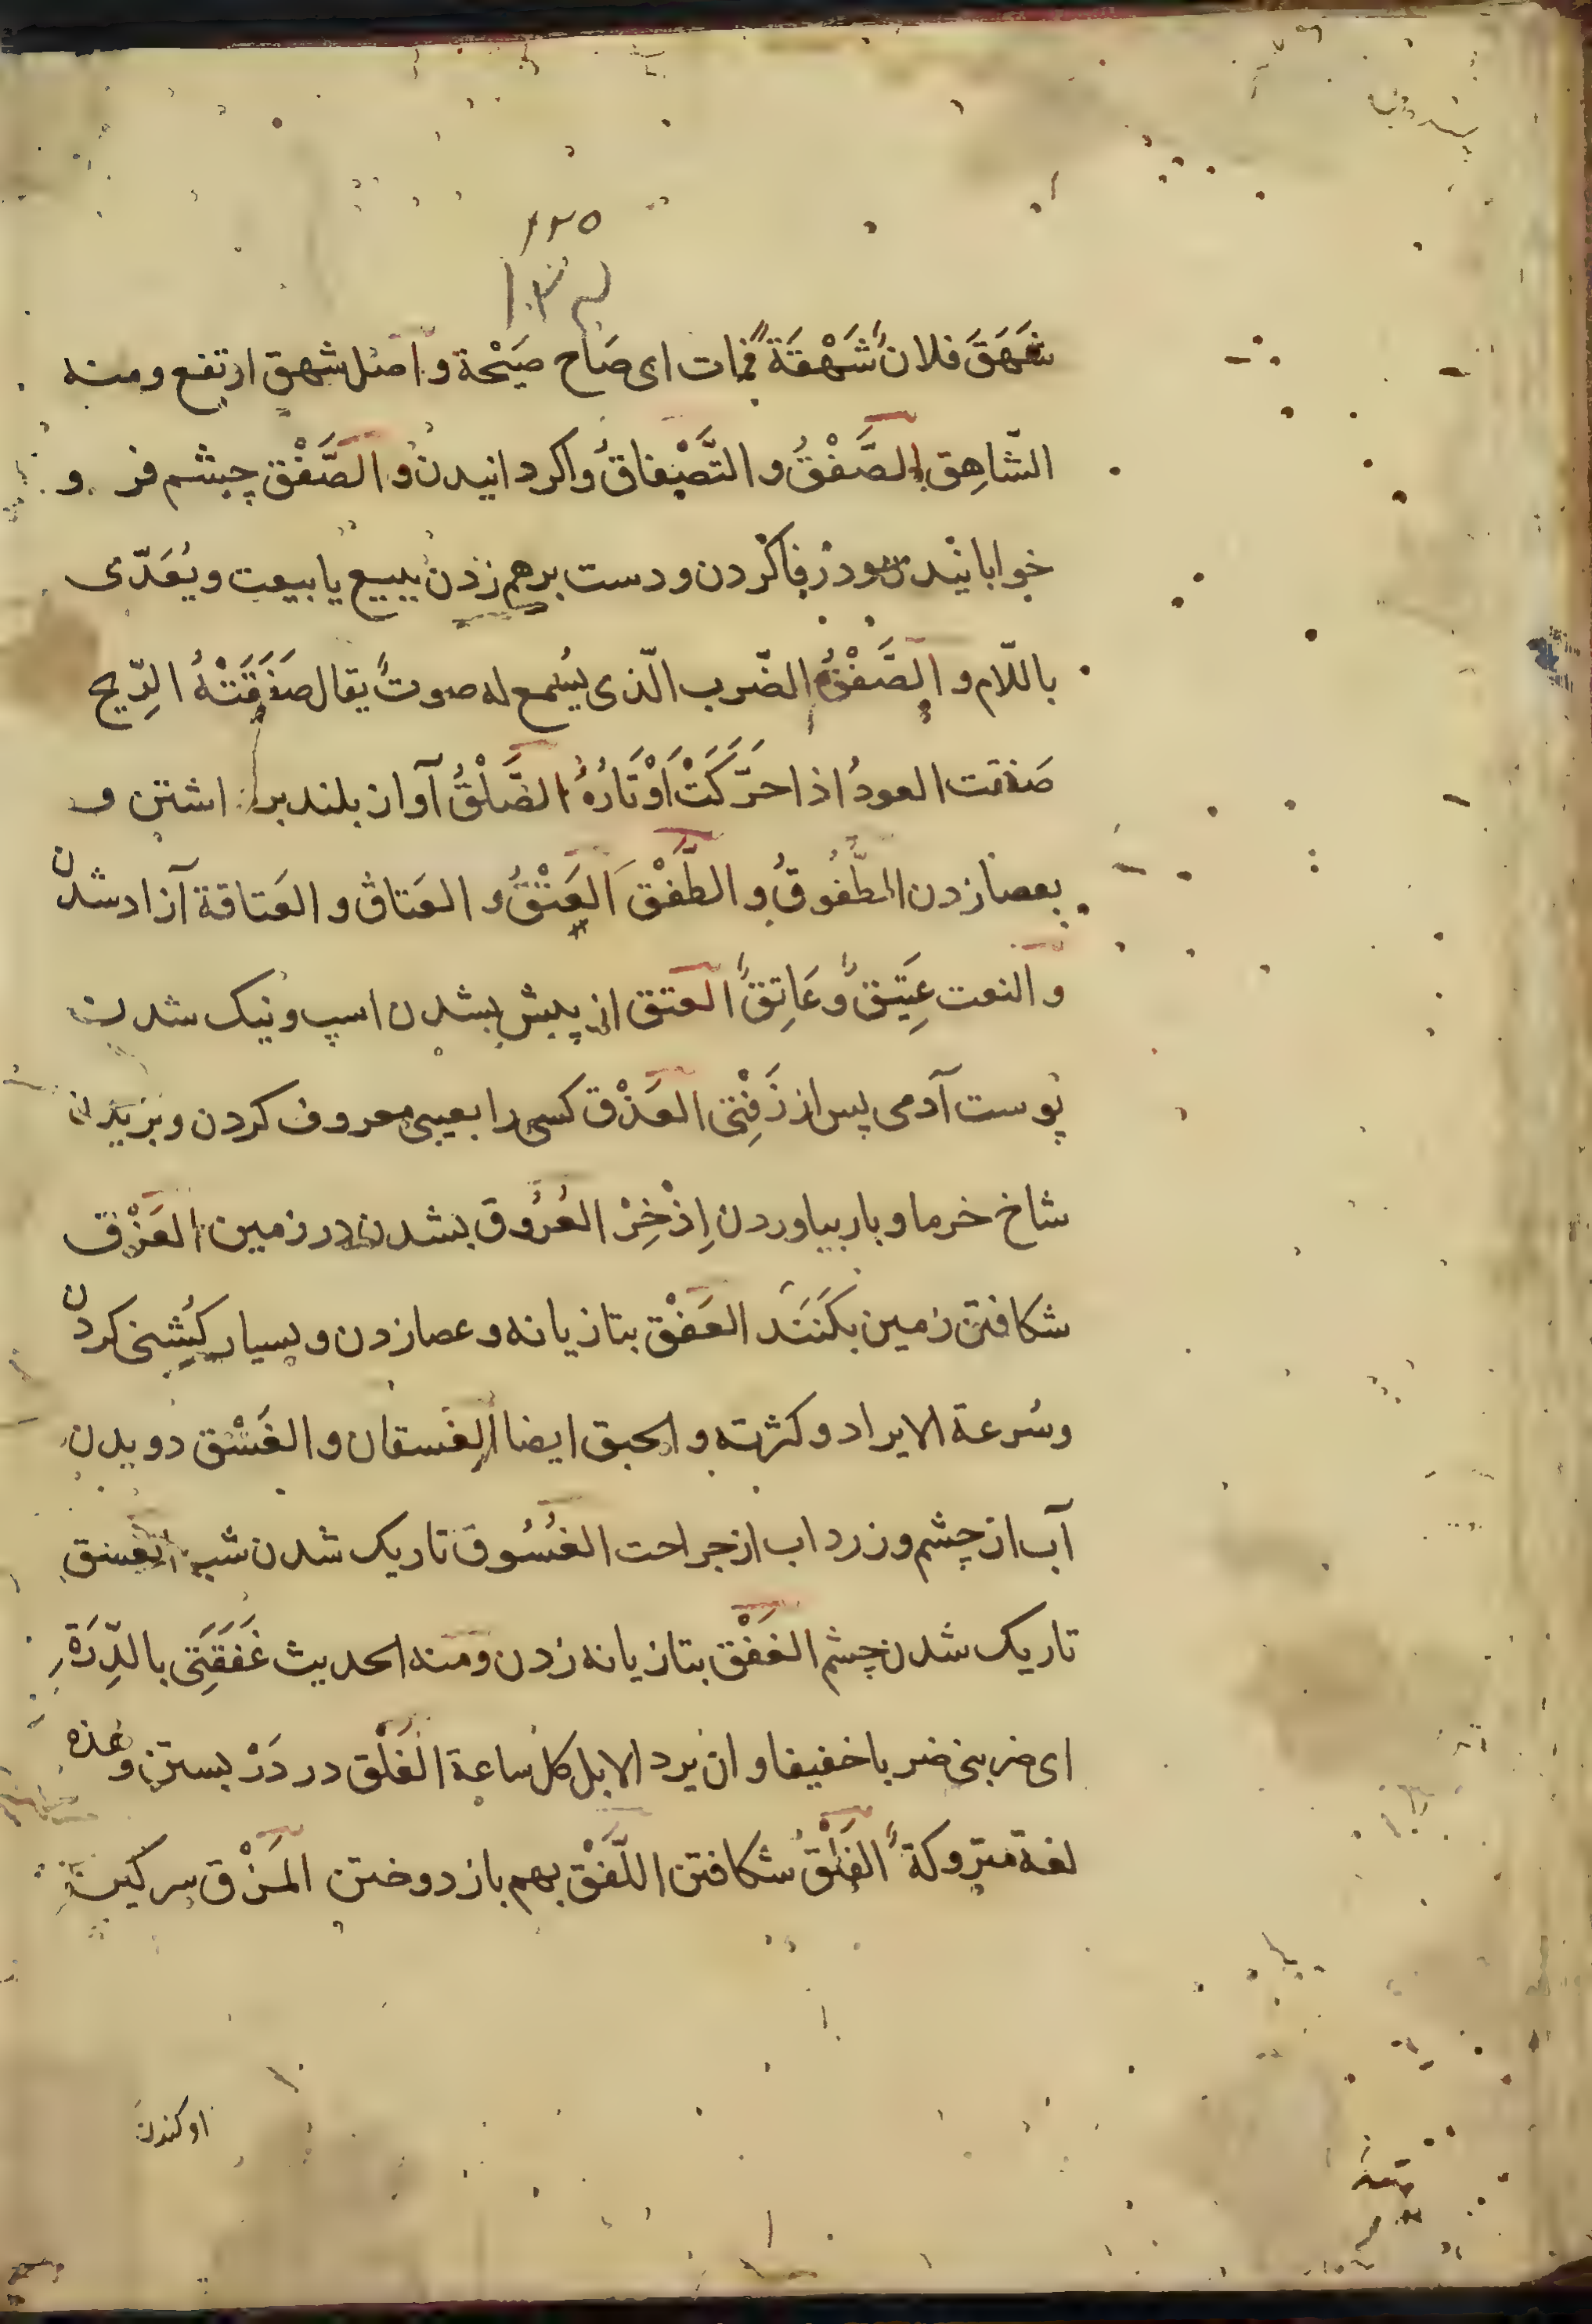 ۱۲۵
شَهَقَ فلانٌ شَهْقَةً فمات ای صَاح صَیْحة و اصل شهق ارتفع ومنه
الشّاهِق الصَّفْقُ و التَّصْفاقُ واکردانیدن و الصَّفْق چشم فر و
خوابانیدن ودر فاکردن ودست برهم زدن ببیع یا ببیعت ویُعَدّی
باللّام و الصَّفْقُ الضّرب الّذی یُسمع له صوتٌ یقال صَفَقَتْهُ الرِّیح
صَفقت العودُ اذا حَرَّکَتْ اَوْتَارُهُ الصَّلْقُ آواز بلند برداشتن و
بعصا زدن الطُّفُوقُ و الطَّفْق اَلعَتْقُ و العَتاقُ و العَتاقة آزاد شدن
و النعت عِتِیقٌ وَّعَاتِقٌ العتق از پیش بشدن اسپ و نیک شدن
پوست آدمی پس از زَفْتِی العَذْق کسی را بعیبی معروف کردن و بریدن
شاخ خرما و بار بیاوردن اِذْخِرْ العُرُوق بشدن در زمین العَزْق
شکافتن زمین بکَنَند العَفْق بتازیانه و عصا زدن و بسیار کُشنی کردن
وسُرعة الایراد و کثرته و الحبق ایضا الغسقان و الغَسْق دویدن
آب از چشم و زرداب از جراحت الغُسُوق تاریک شدن شب الغسق
تاریک شدن چشم الغَفْق بتازیانه زدن ومنه الحدیث غَفَقَنِی بالدِّرَةِ
ای ضربنی ضربا خفیفا و ان یرد الابل کل ساعة الغَلْق در دَرْ بستن و هذه
لغة متروکة الفَلْقُ شکافتن اللَّفْق بهم باز دوختن المَزْق سرکین
اوکندن